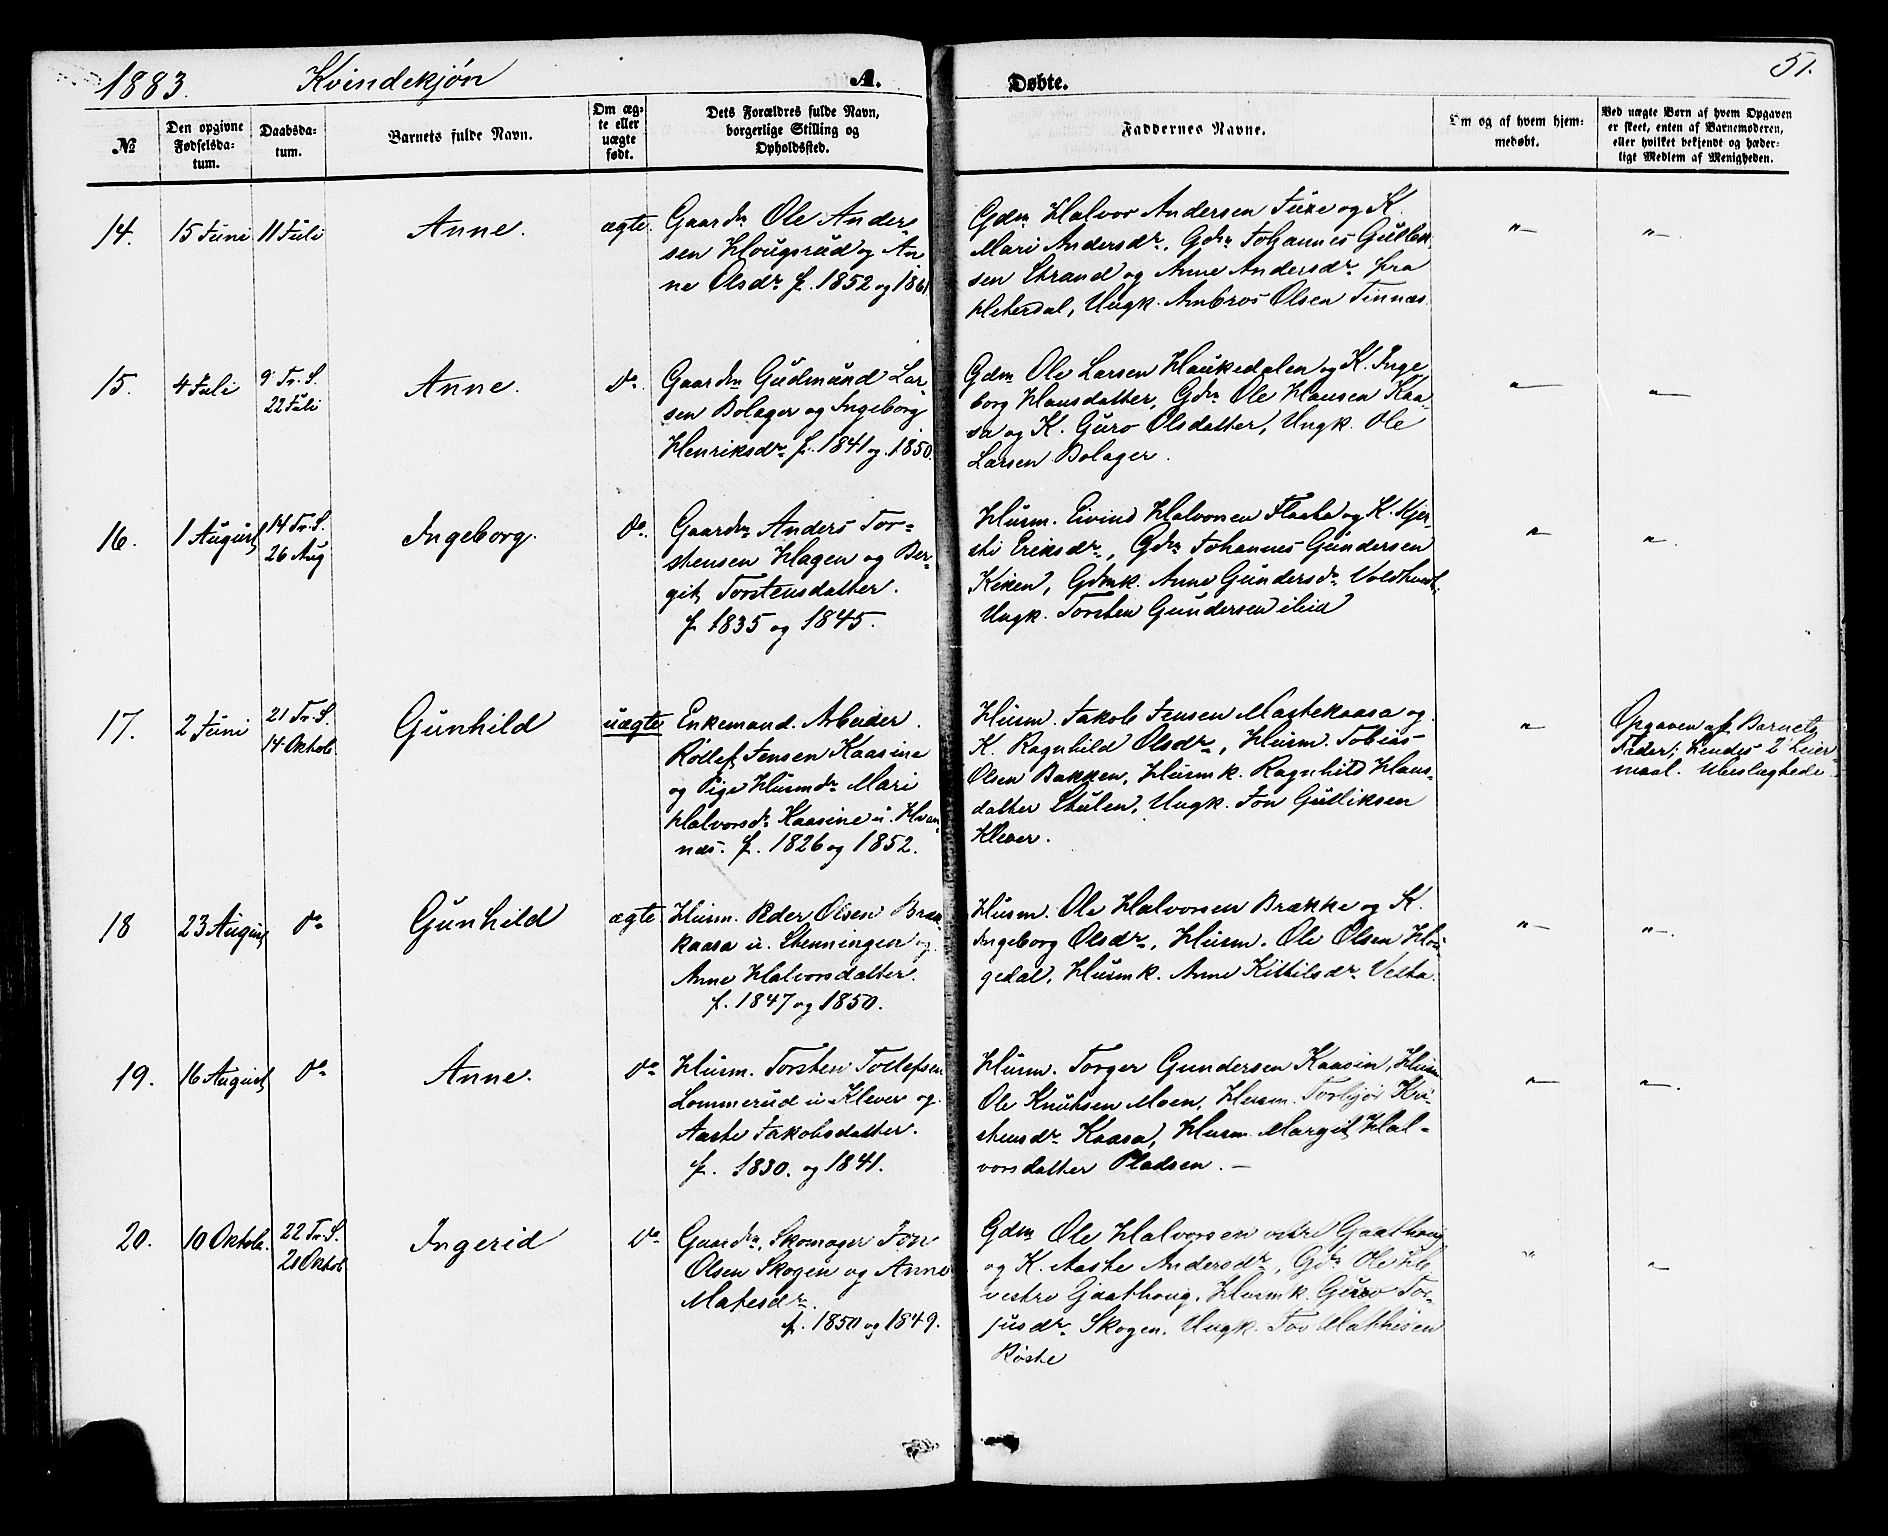 1883. Kvindekjøn A. Døbte. 51.
№
Den opgivne Fødselsda-tum.
Daabsda-tum.
Barnets fulde Navn.
Om æg-te eller uægte født.
Dets Forældres fulde Navn, borgerlige Stilling og Opholdssted.
Faddernes Navne.
Om og af hvem hjem-medøbt.
Ved uægte Børn af hvem Opgaven er skeet, enten af Barnemoderen, eller hvilket bekjendt og hæder-ligt Medlem af Menigheden.
14. 15 Juni 11 Juli Anne. ægte.
Gaardm Ole Ander
sen Hougsrud og An
ne Olsdr f. 1852 og 1861
Gdm Halvor Andersen Fuxe og K.
Mari Andersdr, Gdm Johannes Gullik
sen Strand og Anne Andersdr fra
Hiterdal, Ungk. Ambros Olsen Tinnæs
"— "—
15. 4 Juli 9 Tr. S. 22 Juli Anne. do.
Gaardm Gudmund Lar
sen Bolager og Ingeborg
Henriksdr f. 1841 og 1850.
Gdm Ole Larsen Haukedalen og K. Inge
borg Hansdatter, Gdm Ole Hansen Kaa-
sa og K. Guro Olsdatter, Ungk. Ole
Larsen Bolager.
"— "—
16. 1 August 14 Tr. S. 26 Aug Ingeborg. do.
Gaardm Anders Tor-
stensen Hagen og Ber-
git Torstensdatter.
f. 1835 og 1845.
Husm. Eivind Halvorsen Flaata og K. Kjer-
sti Eriksdr, Gdm Johannes Gundersen
Kiken, Gdmk. Anne Gundersdr
Ungk. Torsten Gundersen ibid
"— "—
17. 2 Juni 21 Tr. S. 14 Oktob. Gunhild uægte
Enkemand. Arbeider.
Rollef Jensen Kaasine
og Pige Husmdr Mari
Halvorsdr Kaasine u. Hvam-
næs. f. 1826 og 1852.
Husm. Jakob Jensen Mastekaasa og
K. Ragnhild Olsdr, Husm. Tobias
Olsen Bakken, Husmk. Ragnhild Hans-
datter Stulen, Ungk. Jon Gulliksen
Klever.
"
Opgaven af Barnets
Fader; hendes 2 Leier-
maal. Ubeslægtede.
18 23 August do Gunhild ægte
Husm. Peder Olsen Bræk
kaasa u. Stenningen og
Anne Halvorsdatter.
f. 1847 og 1850.
Husm. Ole Halvorsen Brække og K.
Ingeborg Olsdr, Husm. Ole Olsen Hou
gedal, Husmk. Anne Kittilsdr Vesta.
"— "—.
19. 16 August do Anne. do
Husm. Torsten Tollefsen
Lommerud u. Klever og
Aaste Jakobsdatter.
f. 1830. og 1841.
Husm. Torger Gundersen Kaasin, Husm
Ole Knutsen Moen, Husm. Torbjør Kri-
stensdr Kaasa, Husm. Margit Hal-
vorsdatter Pladsen. —
"— "—.
20. 10 Oktob. 22 Tr. S. 21 Oktob Ingerid do
Gaardm, Skomager Jon
Olsen Skogen og Anne
Matesdr.
f. 1850 og 1849.
Gdm Ole Halvorsen vestre Gaathoug
og K. Aaste Andersdr, Gdr Ole
vestre Gaathoug, Husmk. Guro Tor-
jusdr Skogen. Ungk. Tov Mathisen
Røste
"— "—